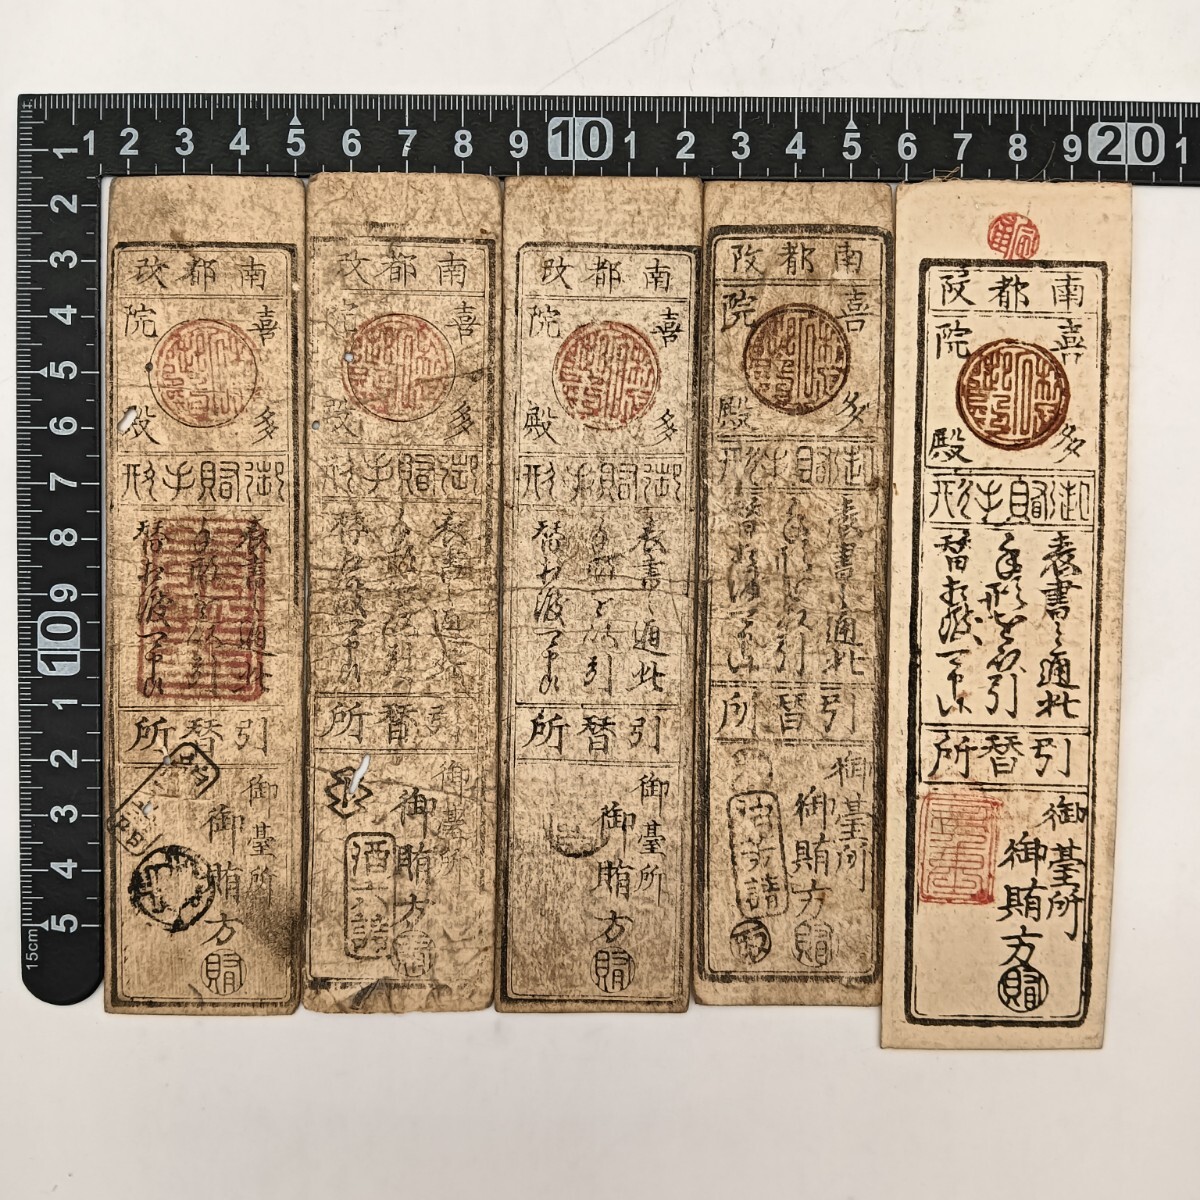 1 2 3 4 5 6 7 8 9 10 1 2 3 4 5 6 7 8 9 20 1
1
2
3
4
5
6
7
8
9
10
1
2
3
4
5
15cm
南都改
喜多
院殿
御賄手形
表書之通此
手形を以引
替相渡可申候
引替所
御臺所
御賄方
賄
南都改
喜多
院殿
御賄手形
表書之通此
手形を以引
替相渡可申候
引替所
御臺所
御賄方
南都改
喜多
院殿
御賄手形
表書之通此
手形を以引
替相渡可申候
引替所
御臺所
御賄方
賄
南都改
喜多
院殿
御賄手形
表書之通此
手形を以引
替相渡可申候
引替所
御臺所
御賄方
賄
南都改
喜多
院殿
御賄手形
表書之通此
手形を以引
替相渡可申候
引替所
御臺所
御賄方
賄